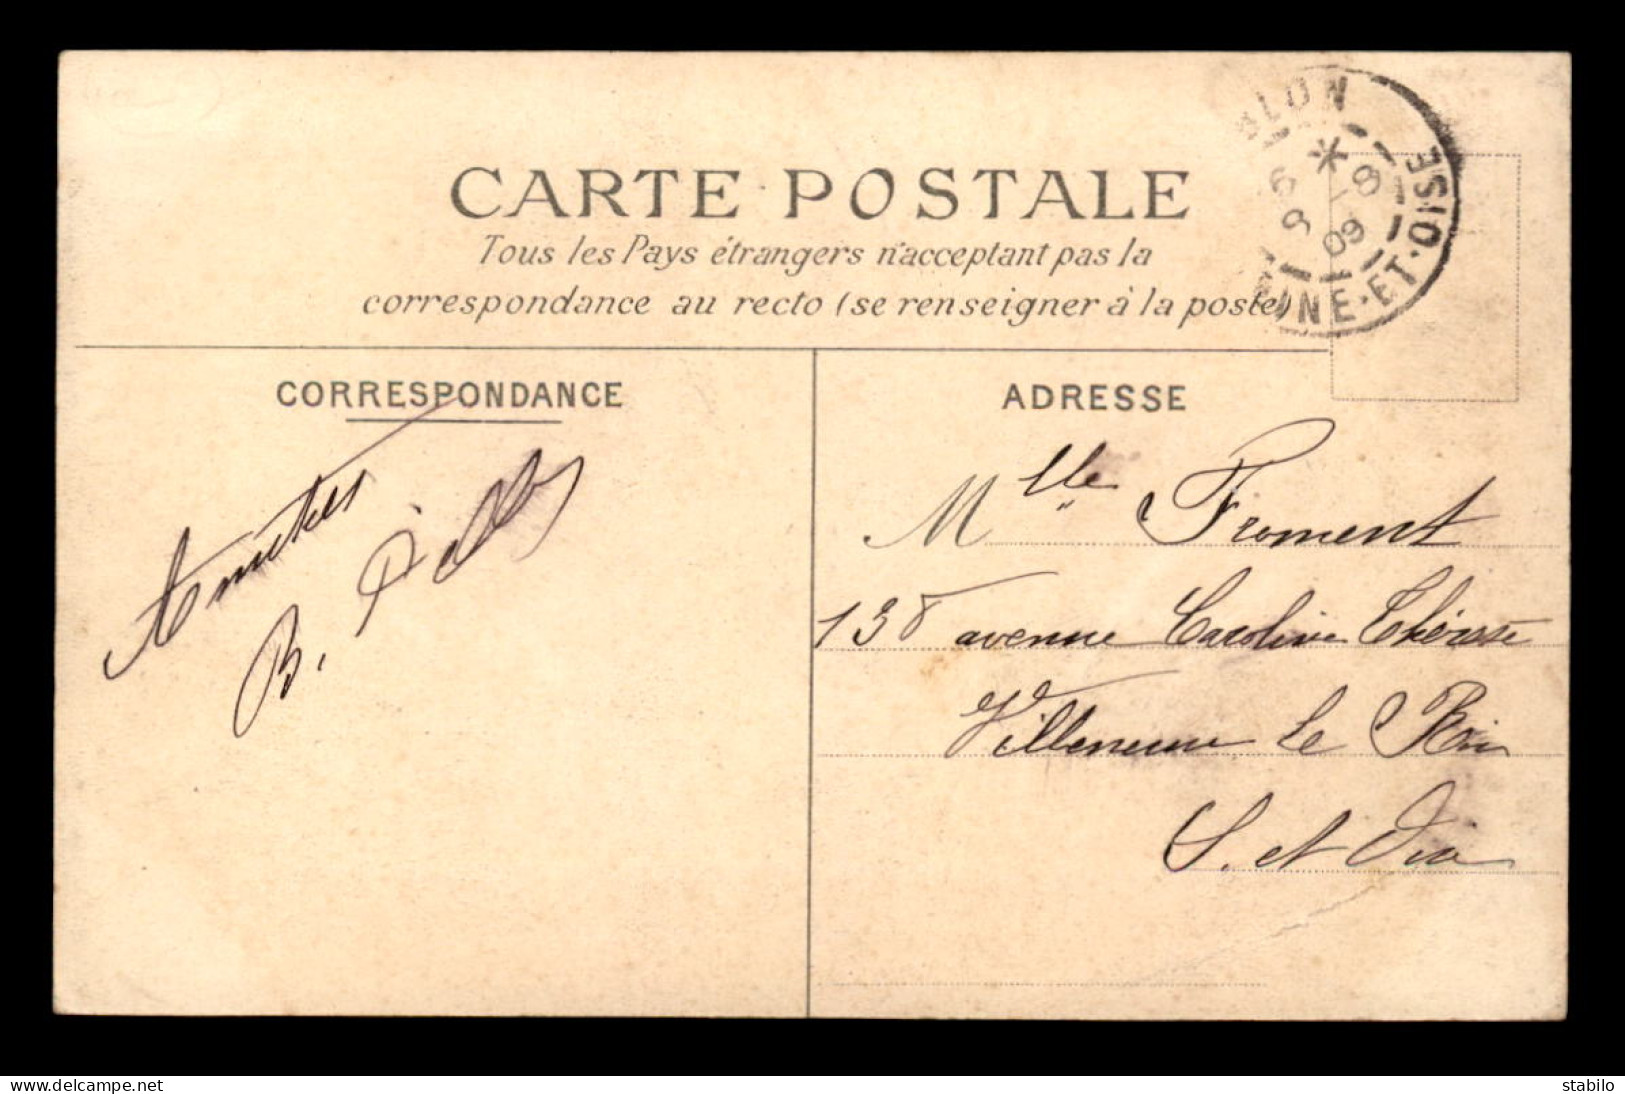 CARTE POSTALE
Tous les Pays étrangers n'acceptant pas la
correspondance au recto (se renseigner à la poste)
CORRESPONDANCE
ADRESSE
Amitiés
B.
Mlle Froment
138 avenue Caroline Thérèse
Villeneuve le Roi
S. et Oise
BLON
9 6
8 -8
09
INE-ET-OISE
delcampe.net
stabilo